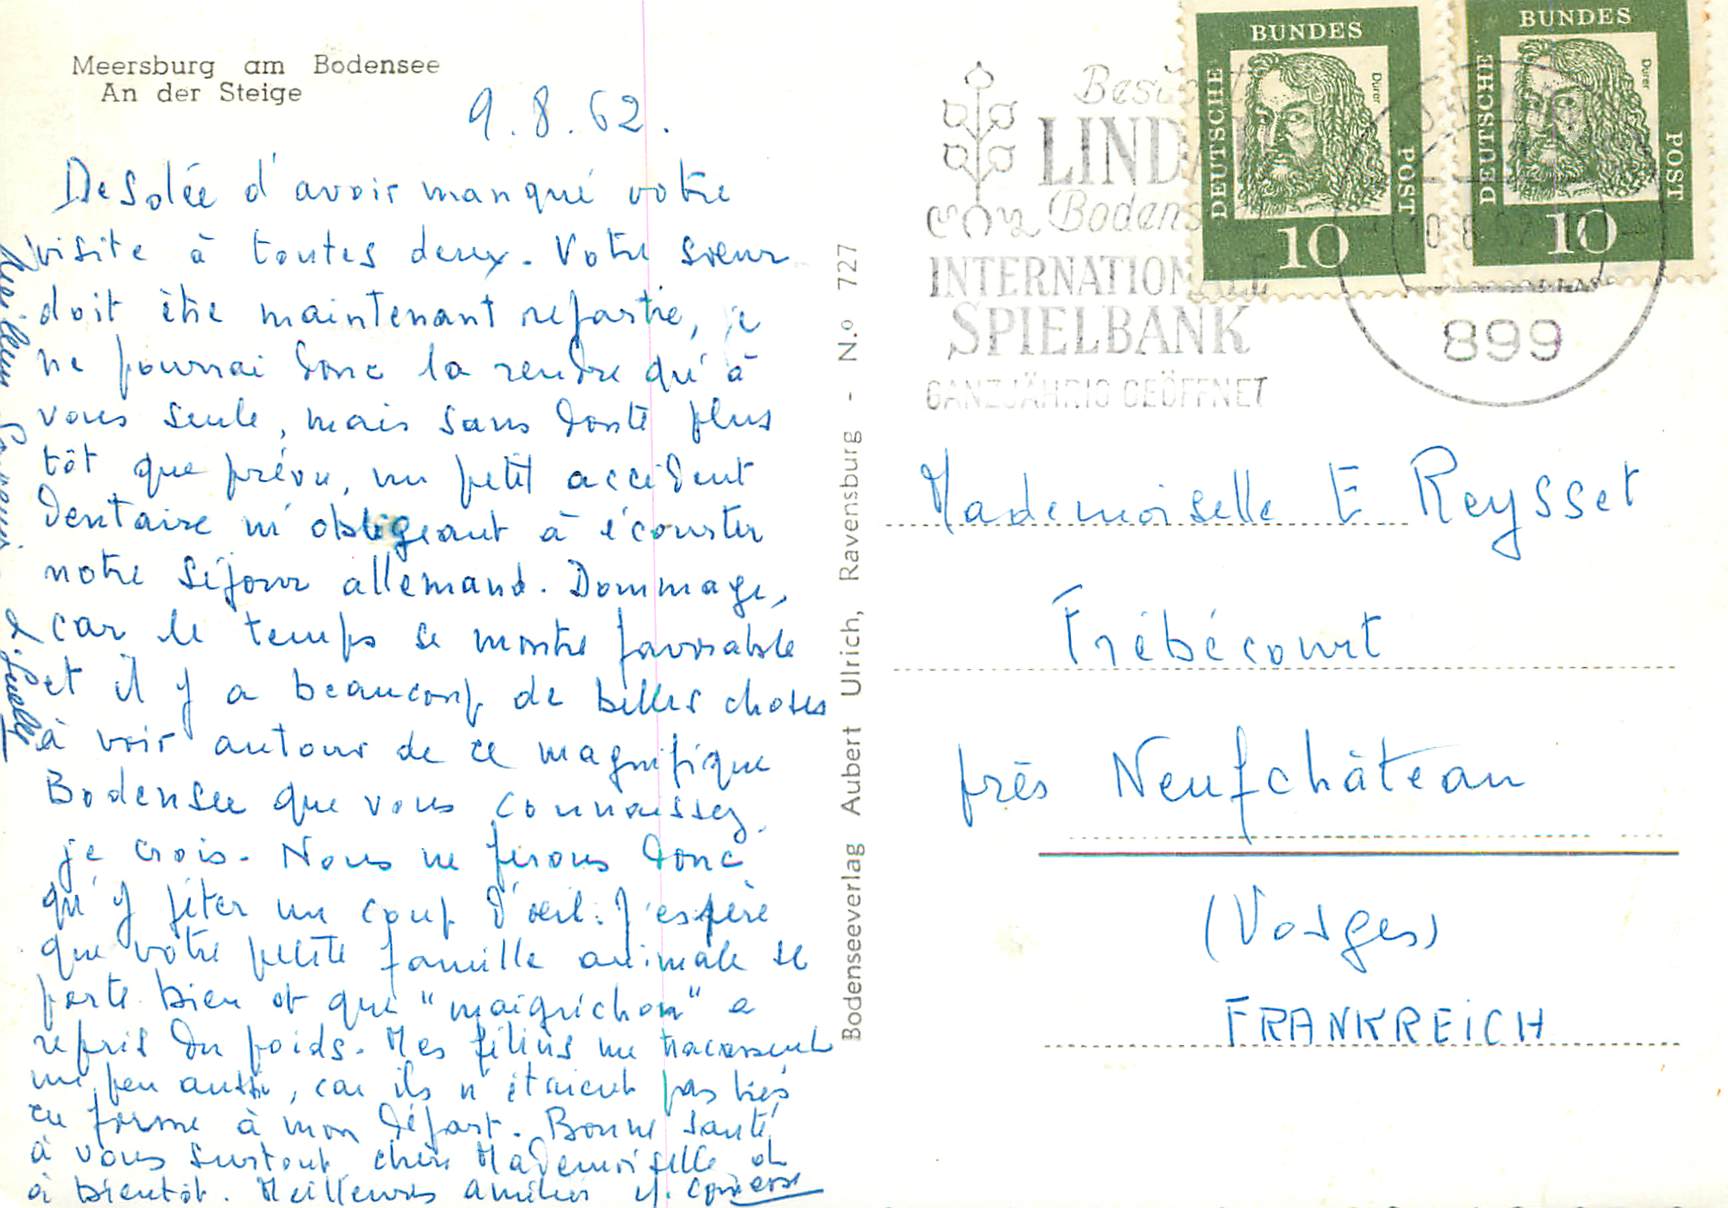 Meersburg am Bodensee
An der Steige
9.8.62.
Desolée d'avoir manqué votre
visite à toutes deux. Votre soeur
doit être maintenant repartie, je
ne pourrai donc la rendre qu'à
vous seule, mais sans doute plus
tôt que prévu, un petit accident
dentaire m'obligeant à écourter
notre séjour allemand. Dommage,
car le temps se montre favorable
et il y a beaucoup de belles choses
à voir autour de ce magnifique
Bodensee que vous connaissez,
je crois. Nous ne ferons donc
qu'y jeter un coup d'oeil. J'espère
que votre petite famille animale se
porte bien et que "maigrichon" a
repris du poids. Mes félins me tracassent
un peu aussi, car ils n'étaient pas très
en forme à mon départ. Bonne santé
à vous surtout, chère Mademoiselle et
à bientôt. Meilleures amitiés
Bodenseeverlag Aubert Ulrich, Ravensburg - N.º 727
Besucht
LINDAU
Bodens
INTERNATIONALE
SPIELBANK
GANZJÄHRIG GEÖFFNET
DEUTSCHE BUNDES POST
Dürer
10
DEUTSCHE BUNDES POST
Dürer
10
10.8.62
899
Mademoiselle E Reysset
Frébécourt
près Neufchâteau
(Vosges)
FRANKREICH